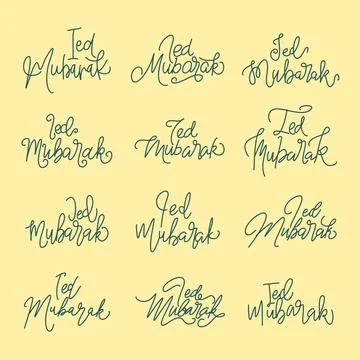 Ied
Mubarak
Ied
Mubarak
Ied
Mubarak
Ied
Mubarak
Ied
Mubarak
Ied
Mubarak
Ied
Mubarak
Ied
Mubarak
Ied
Mubarak
Ied
Mubarak
Ied
Mubarak
Ied
Mubarak